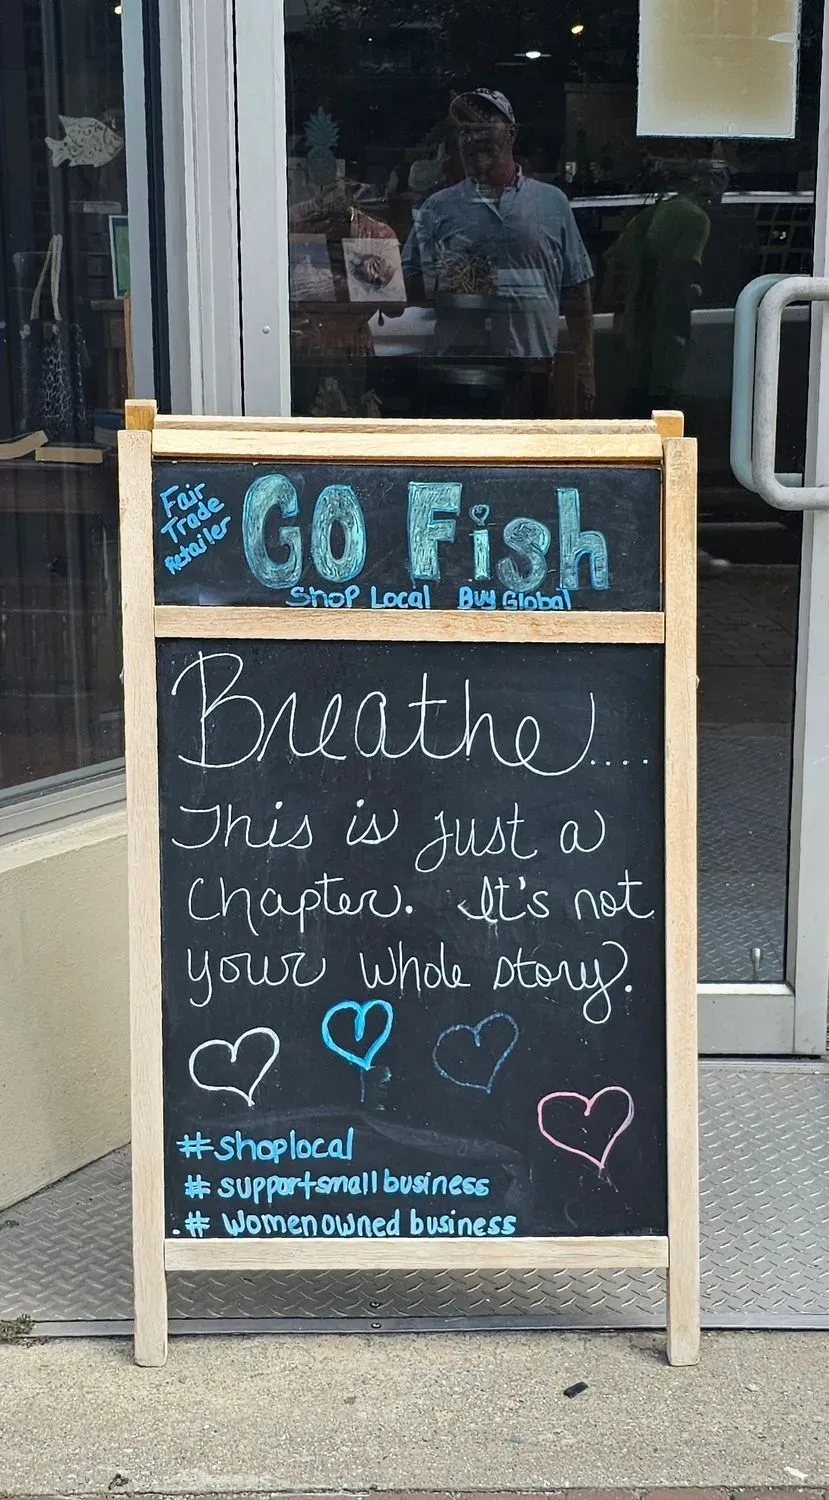 Fair
Trade
Retailer
GO Fish
Shop Local Buy Global
Breathe....
This is just a
Chapter. It's not
your whole story.
#shoplocal
# supportsmallbusiness
.# Womenowned business